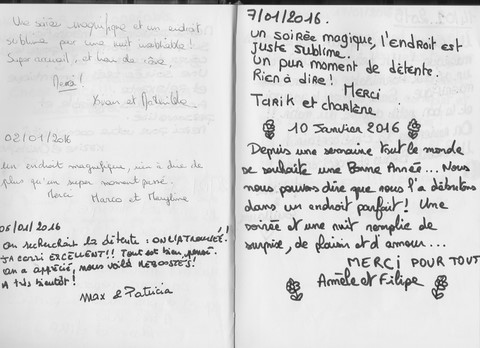 Une soirée magnifique et un endroit
sublime pour une nuit inoubliable!
Super accueil, et bain de rêve.
Merci!
et Mathilde
02/01/2016
Un endroit magnifique, rien à dire de
plus qu'un super moment passé.
Merci Marco et
05/01/2016
On recherchait la détente : ON L'A TROUVÉE!
JACCUZI EXCELLENT!! Tout est bien pensé.
On a apprécié, nous voilà REBOOSTÉS!
A très bientôt!
Max & Patricia
7/01/2016.
un soirée magique, l'endroit est
juste sublime.
Un pur moment de détente.
Rien à dire!
Merci
Tarik et charlène
10 Janvier 2016
Depuis une semaine tout le monde
se souhaite une Bonne Année... Nous
nous pouvons dire que nous l'a débutons
dans un endroit parfait! Une
soirée et une nuit remplie de
surprise, de plaisir et d'amour...
MERCI POUR TOUT
Amèle et Filipe